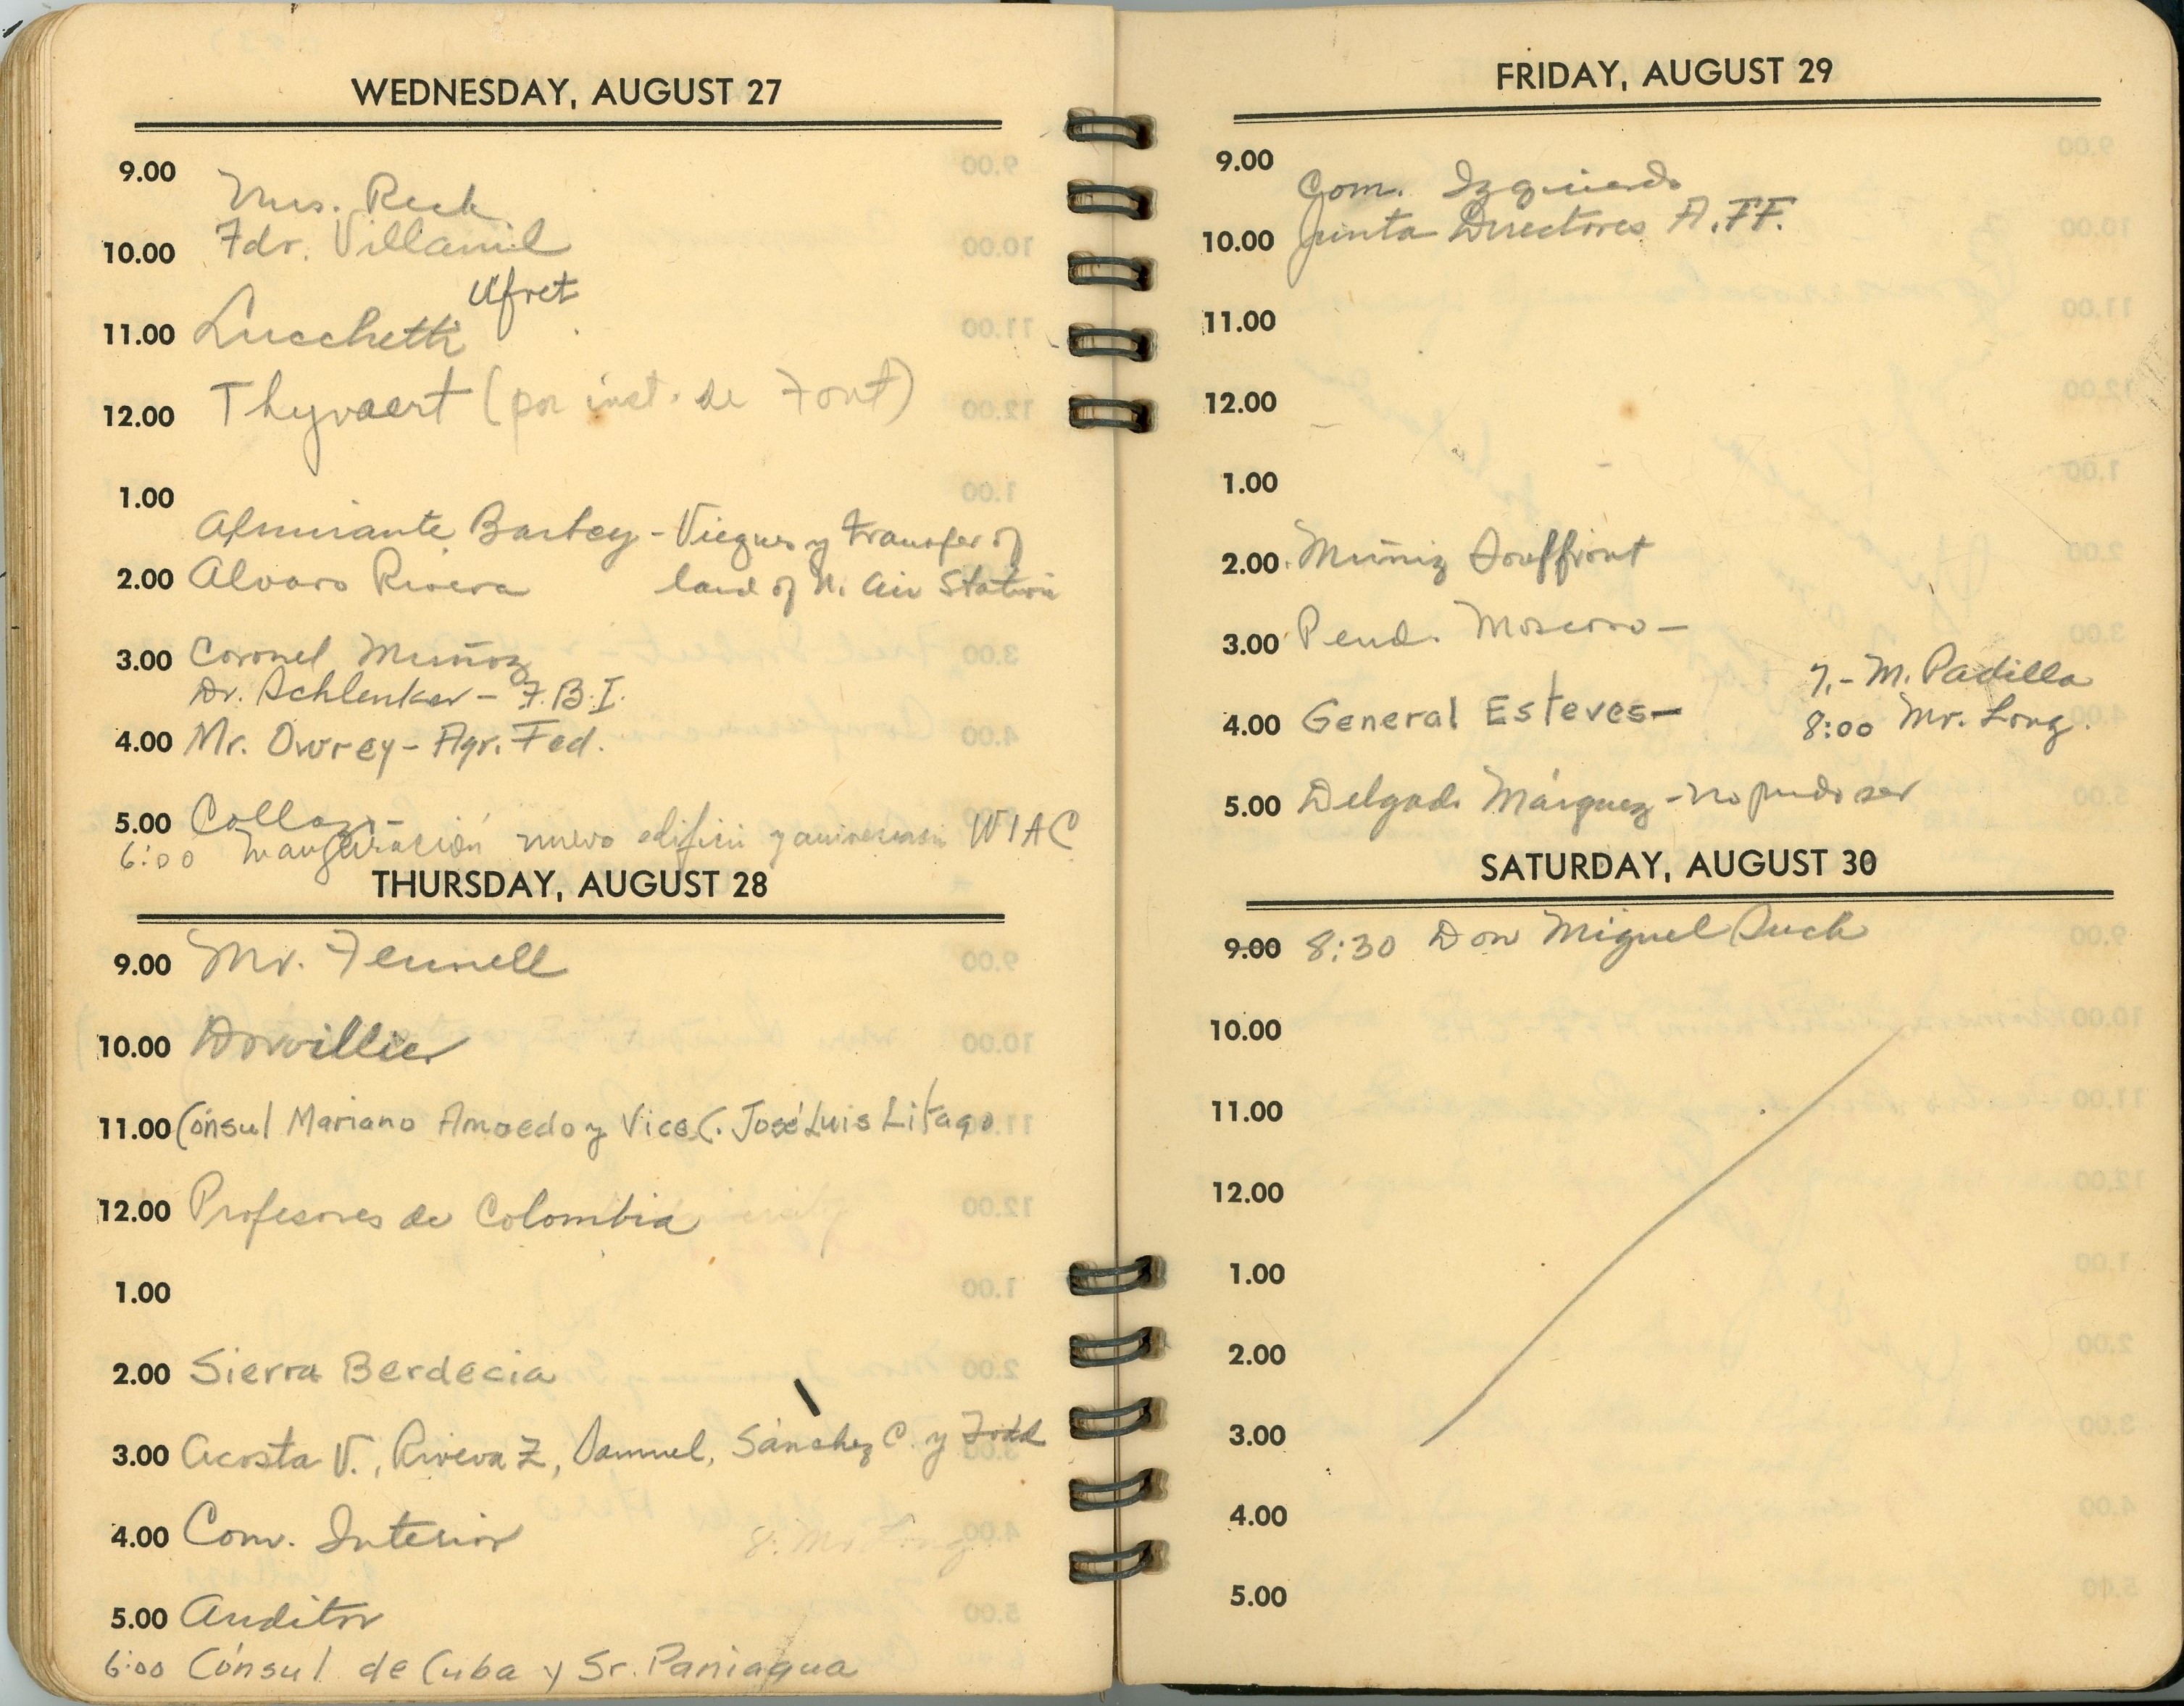 WEDNESDAY, AUGUST 27
9.00 Mrs. Reck
10.00 Fdr. Villamil
Ufret
11.00 Lucchetti
12.00 Thyvaert (por inst. de Font)
1.00
Almirante Barbey - Vieques y transfer of
2.00 Alvaro Rivera land of N. Air Station
3.00 Coronel Muñoz
Dr. Schlenker - F.B.I.
4.00 Mr. Ovrey - Agr. Fed.
5.00 Collazo -
6:00 Inauguración nuevo edificio y aniversario WIAC
THURSDAY, AUGUST 28
9.00 Mr. Fennell
10.00 Dorvillier
11.00 Cónsul Mariano Amoedo y Vice C. José Luis Litago
12.00 Profesores de Colombia
1.00
2.00 Sierra Berdecia
3.00 Acosta V., Rivera Z, Samuel, Sánchez C. y Todd
4.00 Com. Interior 8: Mr. Long
5.00 Auditor
6:00 Cónsul de Cuba y Sr. Paniagua
FRIDAY, AUGUST 29
9.00 Com. Izquierdo
10.00 Junta Directores A.FF.
11.00
12.00
1.00
2.00 Muñiz Souffront
3.00 Pend. Moscoso -
7.- M. Padilla
4.00 General Esteves- 8:00 Mr. Long.
5.00 Delgado Márquez - no pudo ser
SATURDAY, AUGUST 30
9.00 8:30 Don Miguel Such
10.00
11.00
12.00
1.00
2.00
3.00
4.00
5.00